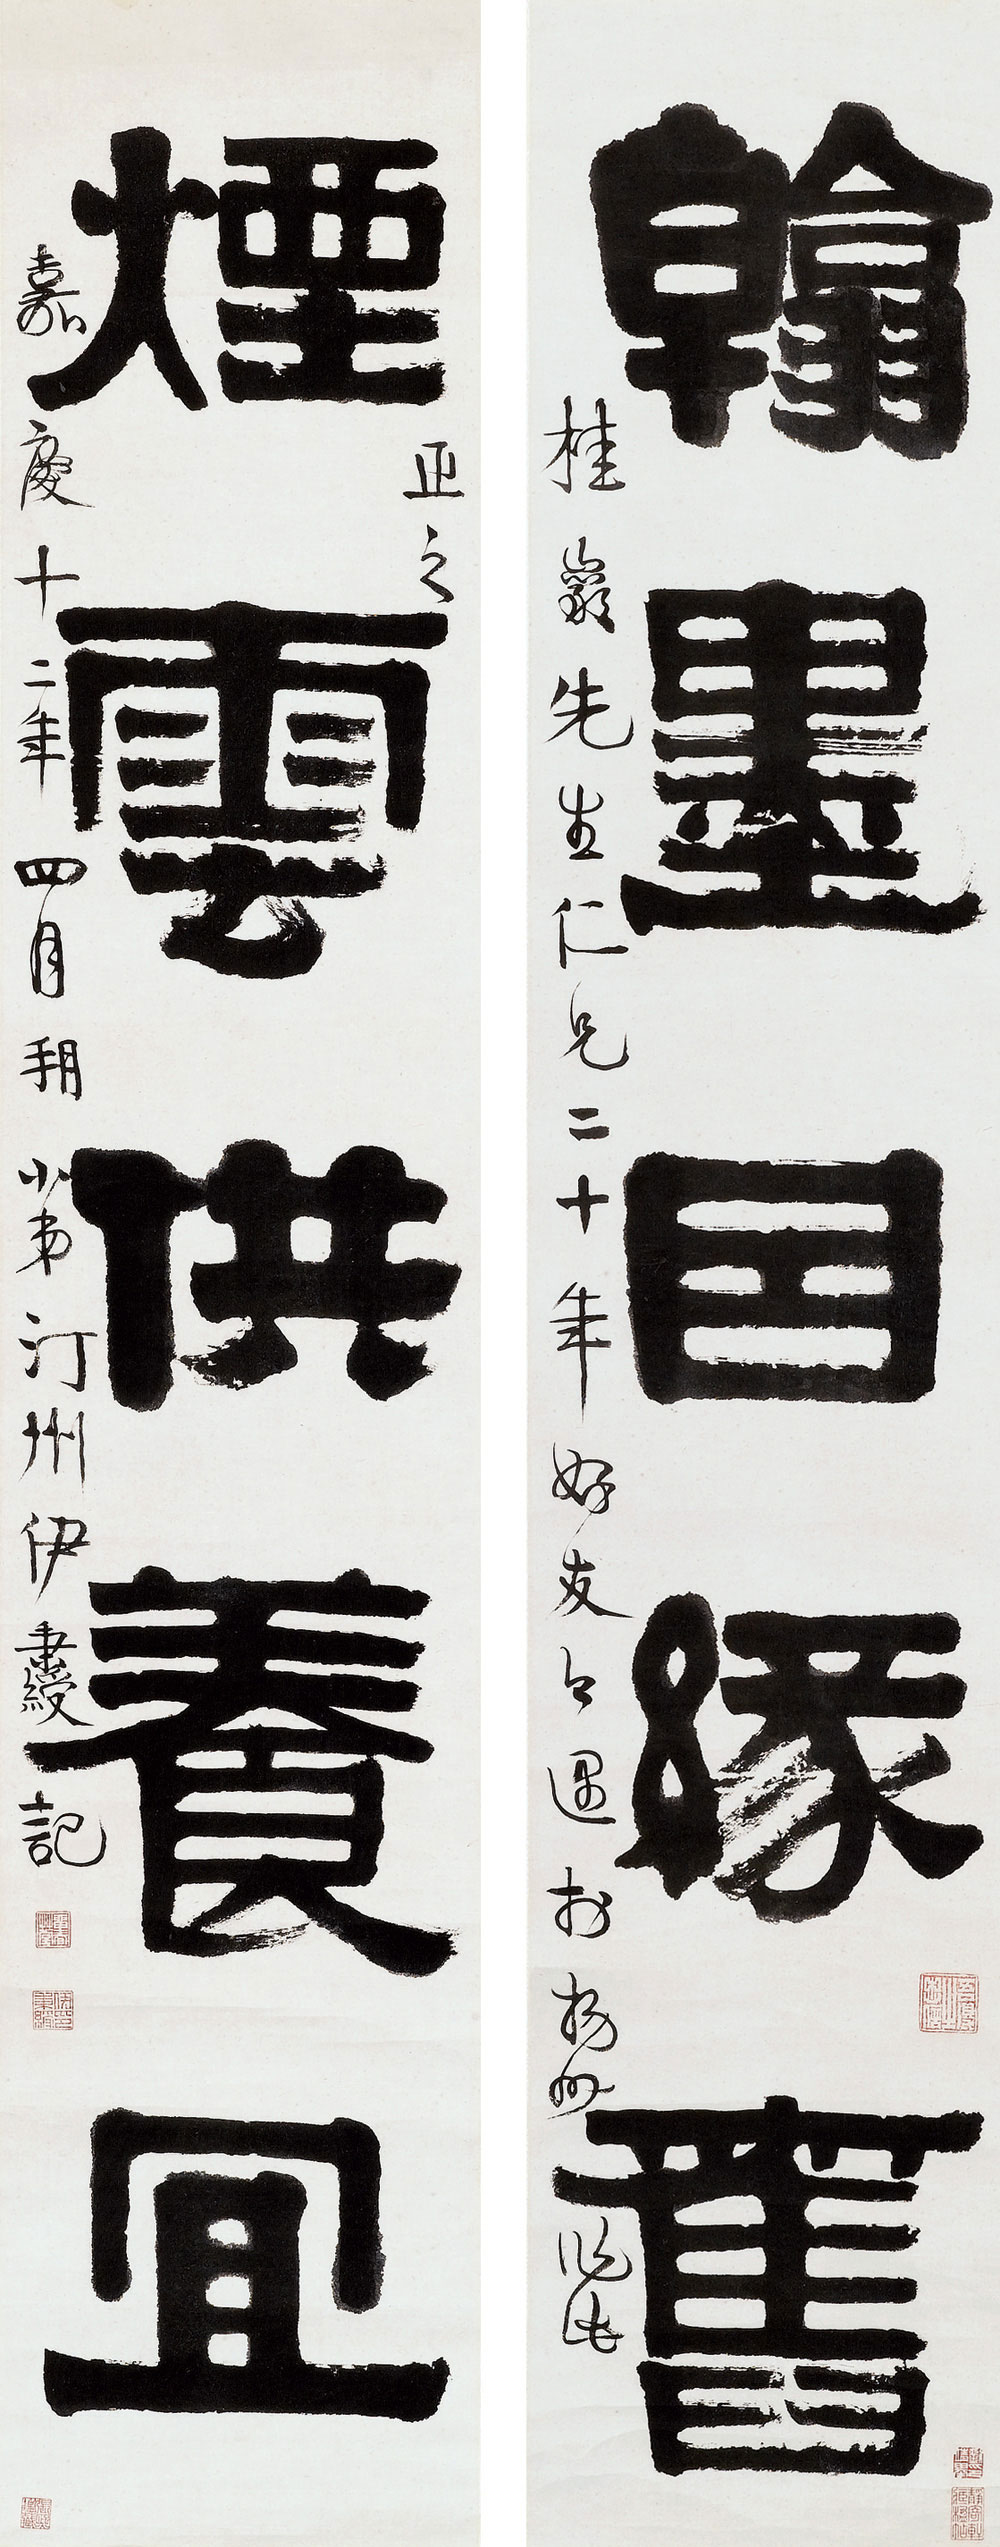 翰墨因緣舊
桂巖先生仁兄二十年好友今遇於揚州
煙雲供養宜
正之
嘉慶十二年四月朔小弟汀州伊秉綬記